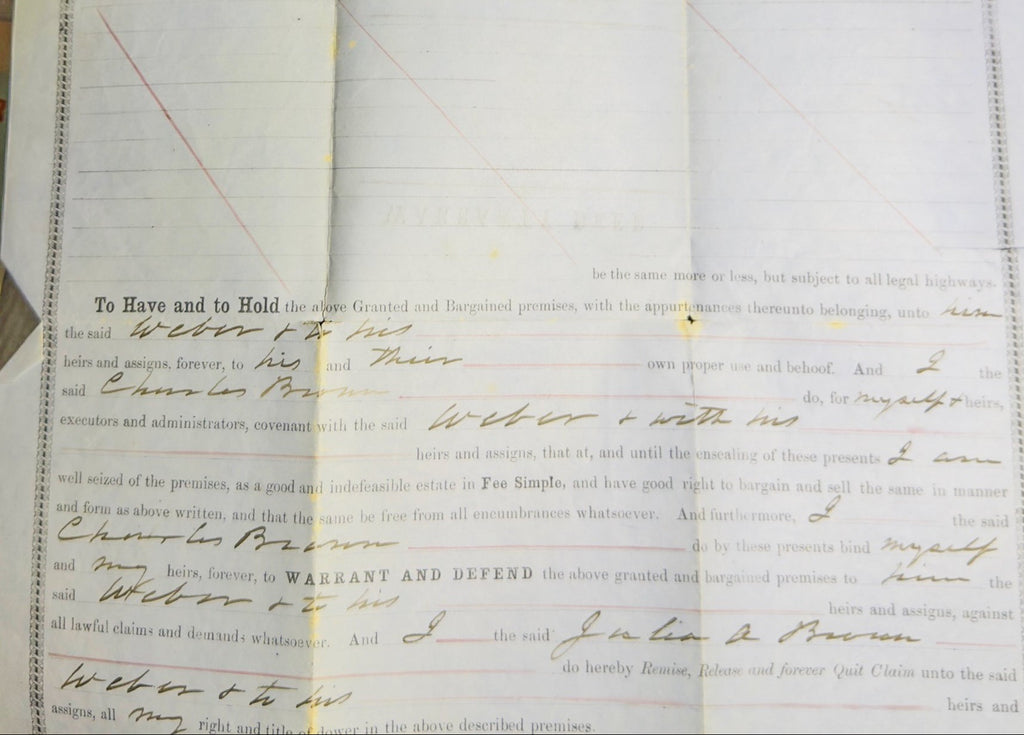 be the same more or less, but subject to all legal highways.
To Have and to Hold the above Granted and Bargained premises, with the appurtenances thereunto belonging, unto him
the said Weber & to his
heirs and assigns, forever, to his and their own proper use and behoof. And I the
said Charles Brown do, for myself & heirs,
executors and administrators, covenant with the said Weber & with his
heirs and assigns, that at, and until the ensealing of these presents I am
well seized of the premises, as a good and indefeasible estate in Fee Simple, and have good right to bargain and sell the same in manner
and form as above written, and that the same be free from all encumbrances whatsoever. And furthermore, I the said
Charles Brown do by these presents bind myself
and my heirs, forever, to WARRANT AND DEFEND the above granted and bargained premises to him the
said Weber & to his heirs and assigns, against
all lawful claims and demands whatsoever. And I the said Julia A Brown
do hereby Remise, Release and forever Quit Claim unto the said
Weber & to his heirs and
assigns, all my right and title of dower in the above described premises.